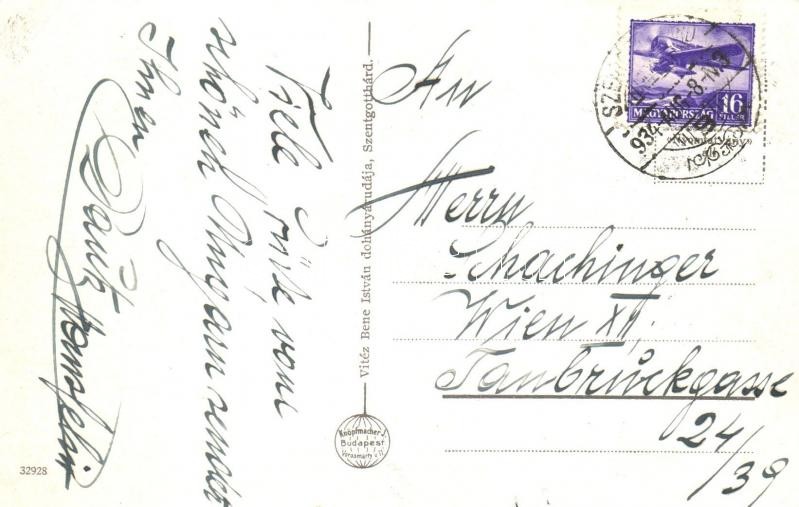 Viele Grüße vom
schönen Ungarn sendet
Ihnen
Vitéz Bene István dohányárudája, Szentgotthárd.
Knopfmacher J.
Budapest
Vörösmarty u. 11
32928
An
Herrn
Schachinger
Wien XII,
Tanbrückgasse
24/39
MAGYARORSZÁG
16
FILLÉR
934